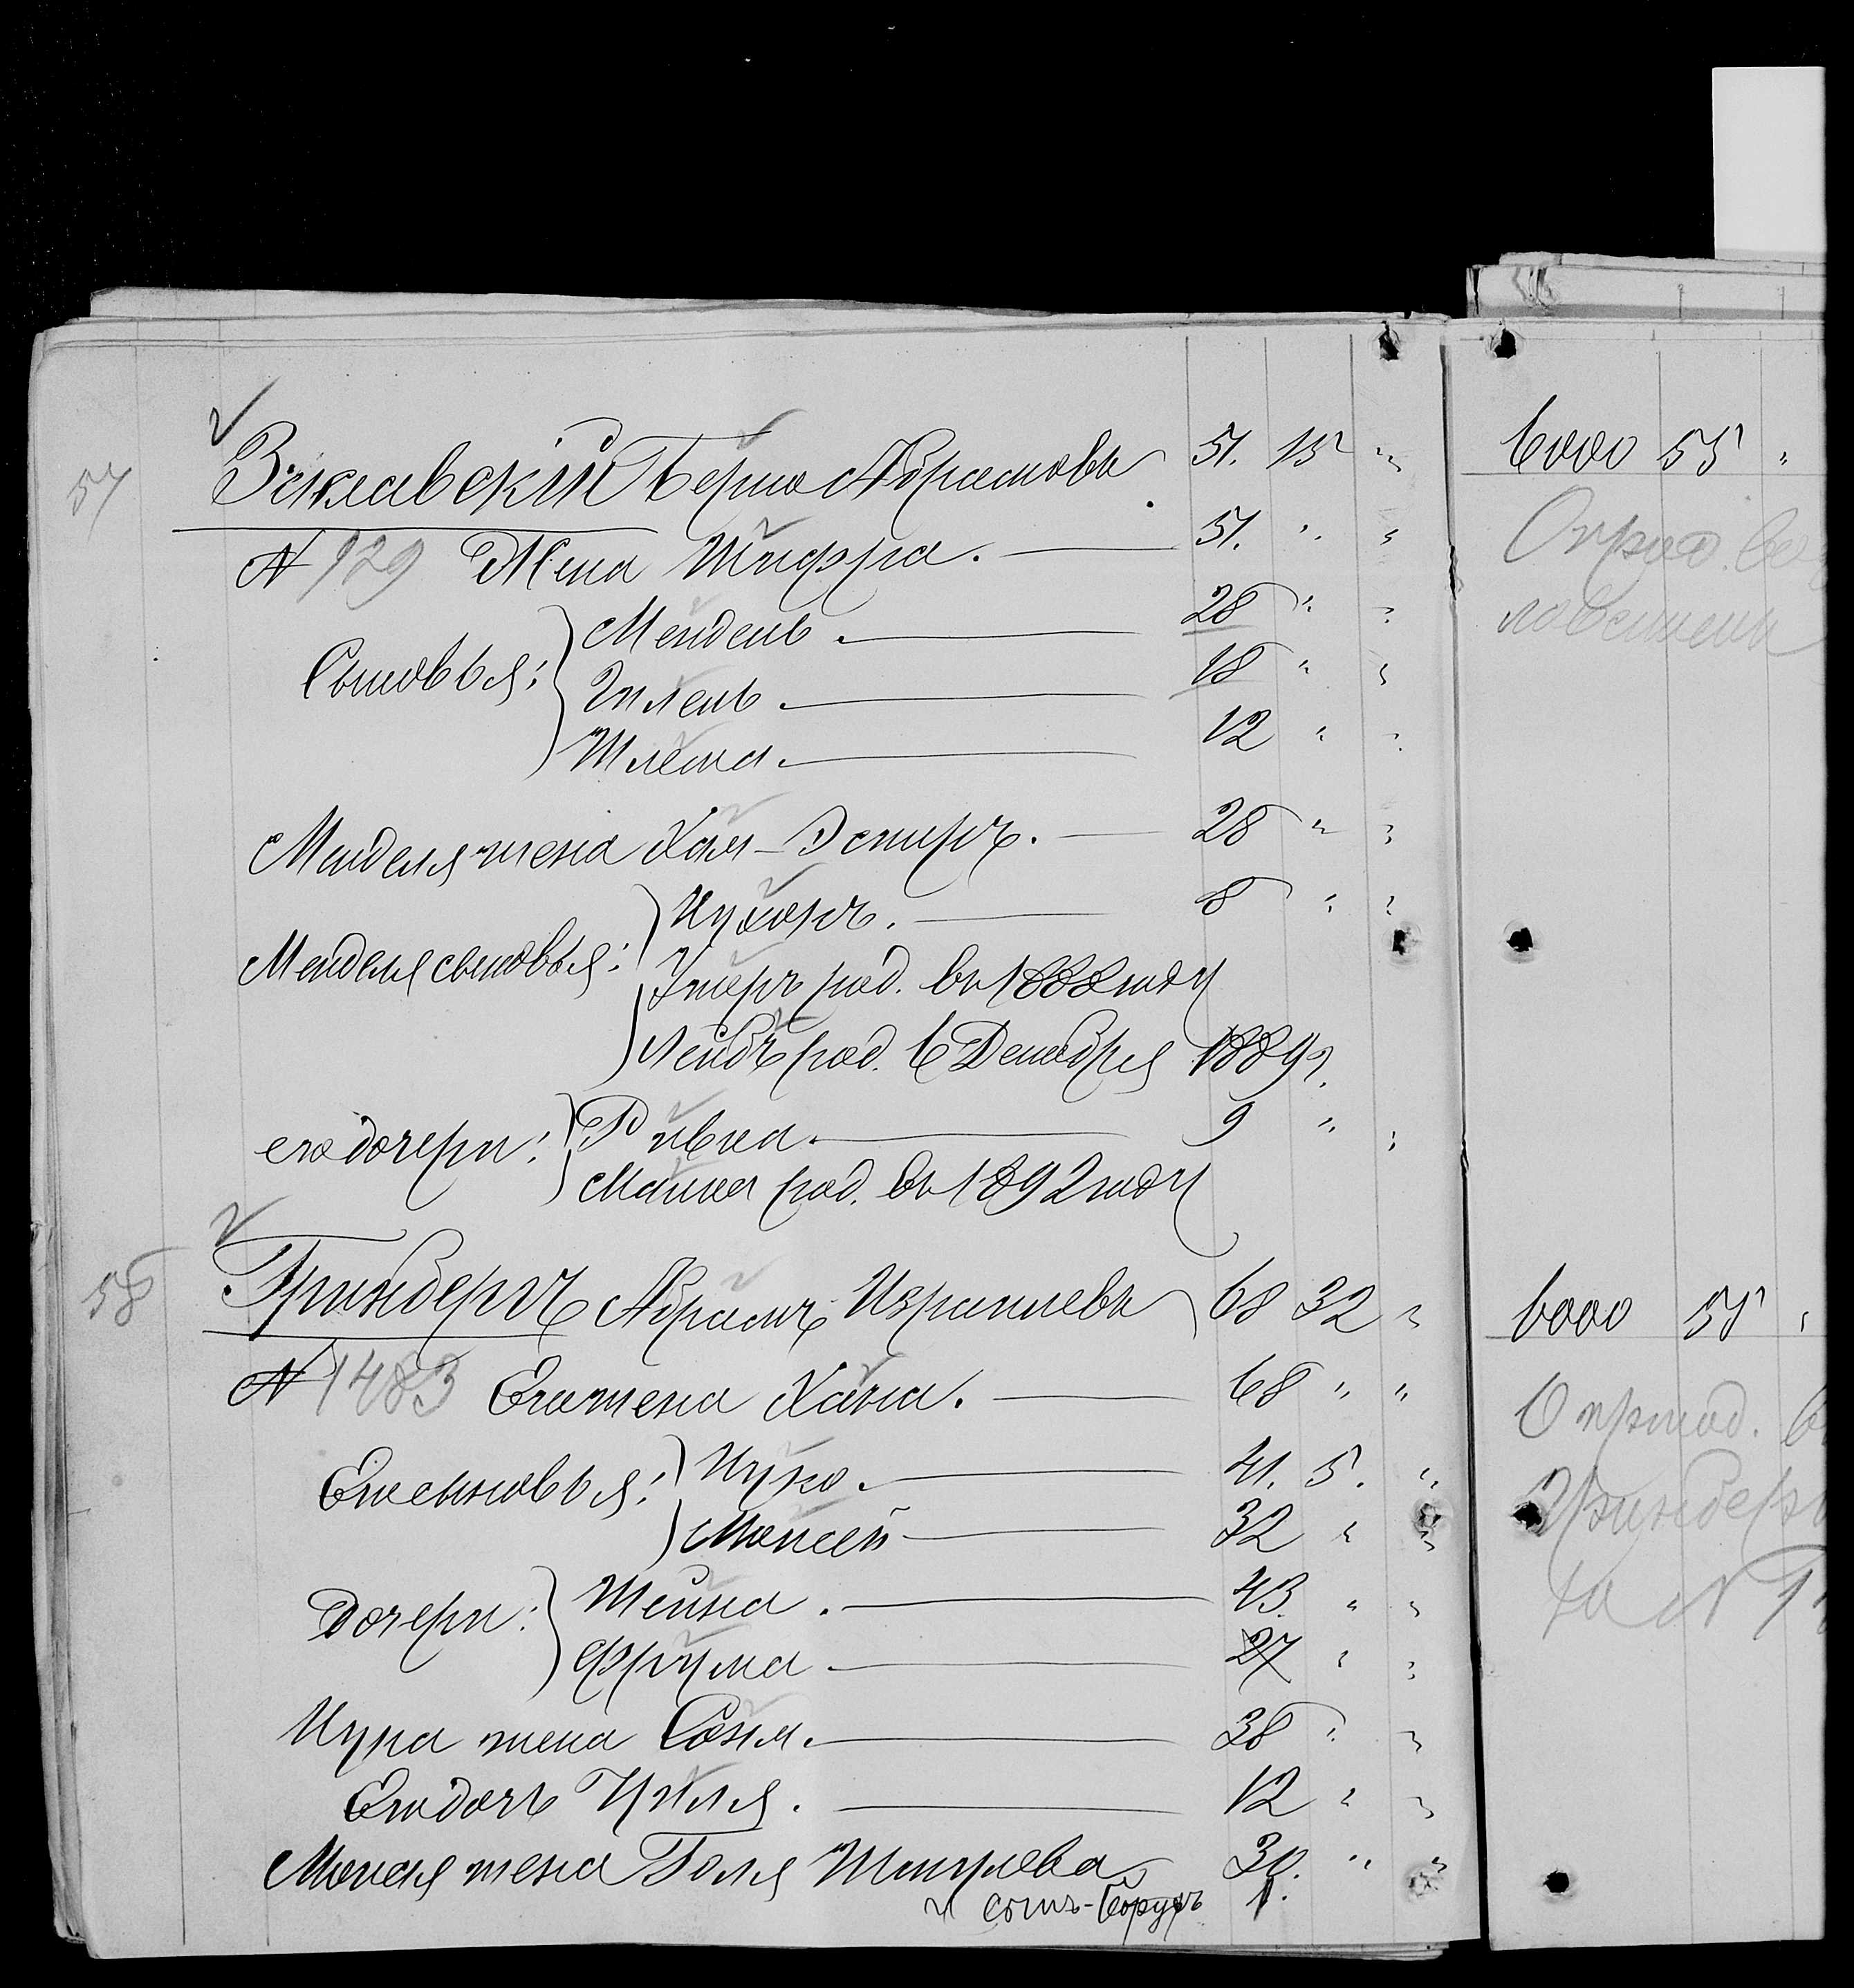 57 Заславскій Берко Абрамовъ 51. 15 „ 6000 55 „
№ 129 Жена Шифра. 51. „ „
Сыновья: Мендель. 28 „ „
Гилель. 18 „ „
Шлема. 12 „ „
Менделя жена Хая-Эстеръ. 28 „ „
Менделя сыновья: 8 „ „
род. въ 1888 году
Лейбъ род. 6 Декабря 1889 г.
его дочери: Ривка. 9 „ „
Малка род. въ 1892 году
58 Гринбергъ Абрамъ Израилевъ 68 32 „ 6000 55 „
№ 1483 Его жена Хана. 68 „ „
Его сыновья: Ицко. 41. 5. „
Моисей 32 „ „
Дочери: Шейна. 43. „ „
Фрума 27 „ „
Ицка жена Соня. 38 „ „
Его дочь Циля. 12 „ „
Моисея жена Голя 30. „ „
и сынъ-Борухъ 1.